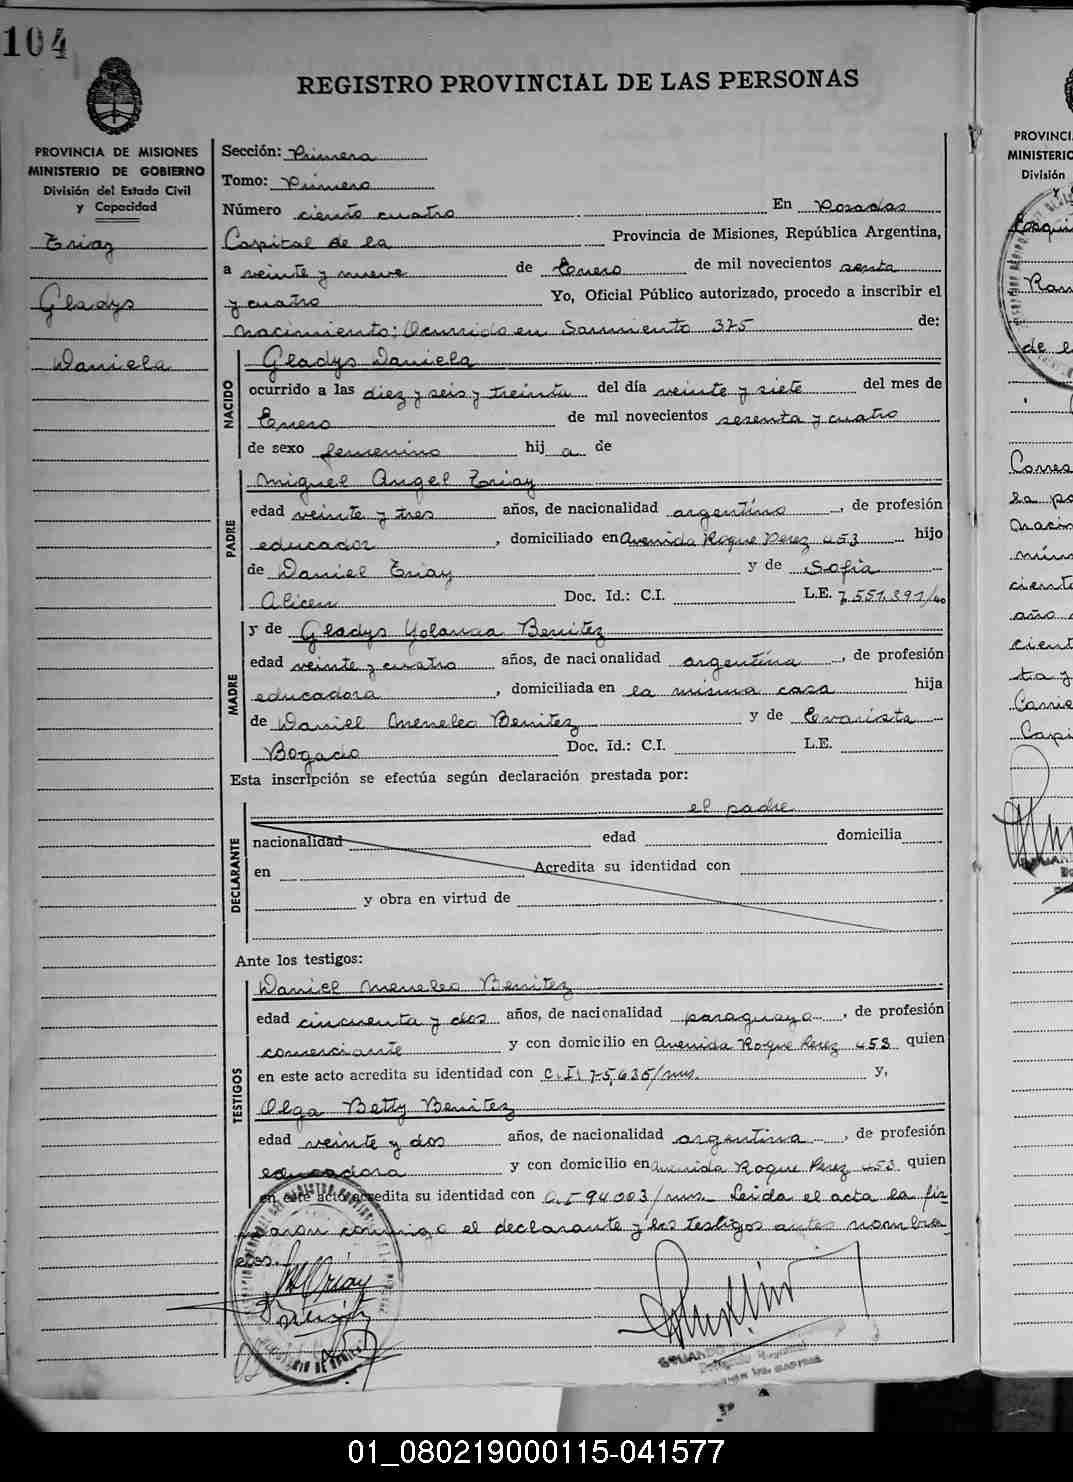 104
REGISTRO PROVINCIAL DE LAS PERSONAS
PROVINCIA DE MISIONES
MINISTERIO DE GOBIERNO
División del Estado Civil
y Capacidad
Triay
Gladys
Daniela
Sección: Primera
Tomo: Primero
Número ciento cuatro En Posadas
Capital de la Provincia de Misiones, República Argentina,
a veinte y nueve de Enero de mil novecientos senta
y cuatro Yo, Oficial Público autorizado, procedo a inscribir el
nacimiento; Ocurrido en Sarmiento 375 de:
NACIDO
Gladys Daniela
ocurrido a las diez y seis y treinta del día veinte y siete del mes de
Enero de mil novecientos sesenta y cuatro
de sexo femenino hij a de
PADRE
Miguel Angel Triay
edad veinte y tres años, de nacionalidad argentino, de profesión
educador, domiciliado en Avenida Roque Perez 453 hijo
de Daniel Triay y de Sofia
Alicen Doc. Id.: C.I. L.E. 7.551.391/40
MADRE
y de Gladys Yolanda Benitez
edad veinte y cuatro años, de nacionalidad argentina, de profesión
educadora, domiciliada en la misma casa hija
de Daniel Meneleo Benitez y de Evarista
Bogado Doc. Id.: C.I. L.E.
Esta inscripción se efectúa según declaración prestada por:
DECLARANTE
el padre
nacionalidad edad domicilia
en Acredita su identidad con
y obra en virtud de
Ante los testigos:
TESTIGOS
Daniel Meneleo Benitez
edad cincuenta y dos años, de nacionalidad paraguayo, de profesión
comerciante y con domicilio en Avenida Roque Perez 453 quien
en este acto acredita su identidad con C.I. 75,635/mns. y,
Olga Betty Benitez
edad veinte y dos años, de nacionalidad argentina, de profesión
educadora y con domicilio en Avenida Roque Perez 453 quien
en este acto acredita su identidad con C.I 94003/mns. Leida el acta la fir-
maron conmigo el declarante y los testigos antes nombra-
dos.
PROVINCI
MINISTERIO
División
Ran
de e
Corres
la pa
nacim
cient
año
cient
ta y
Capi
01_080219000115-041577